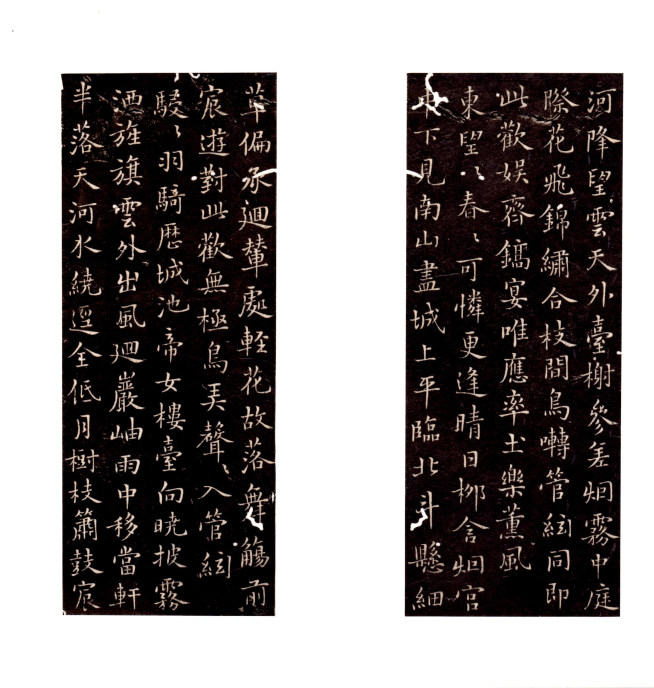 河降望雲天外臺榭參差烟霧中庭
際花飛錦繡合枝間鳥囀管絃同即
此歡娛齊鎬宴唯應率土樂薰風
東望〻春〻可憐更逢晴日栁含烟宮
中下見南山盡城上平臨北斗懸細
草偏承迴輦處輕花故落舞觴前
宸遊對此歡無極鳥弄聲〻入管絃
駸〻羽騎歷城池帝女樓臺向曉披霧
洒旌旗雲外出風迴巖岫雨中移當軒
半落天河水繞逕全低月樹枝簫鼓宸